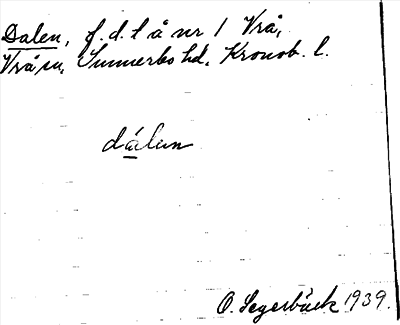 Dalen, f.d.t å nr 1 Vrå,
Vrå sn, Sunnerbo hd, Kronob. l.
dálun
O. Segerbäck 1939.